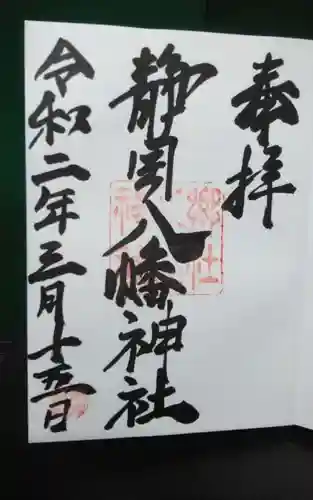 奉拝
静岡八幡神社
令和二年三月十五日